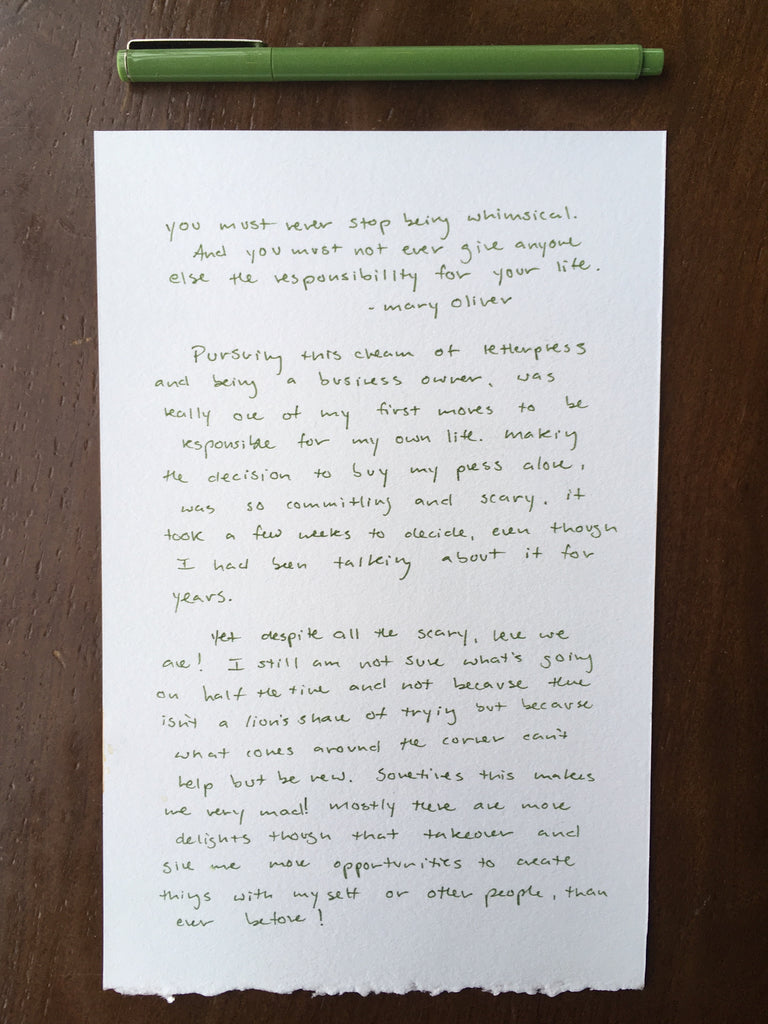 you must never stop being whimsical.
And you must not ever give anyone
else the responsibility for your life.
- mary Oliver
Pursuing this dream of letterpress
and being a business owner, was
really one of my first moves to be
responsible for my own life. making
the decision to buy my press alone,
was so committing and scary, it
took a few weeks to decide, even though
I had been talking about it for
years.
Yet despite all the scary, here we
are! I still am not sure what's going
on half the time and not because there
isn't a lion's share of trying but because
what comes around the corner can't
help but be new. Sometimes this makes
me very mad! mostly there are more
delights though that takeover and
give me more opportunities to create
things with myself or other people, than
ever before!